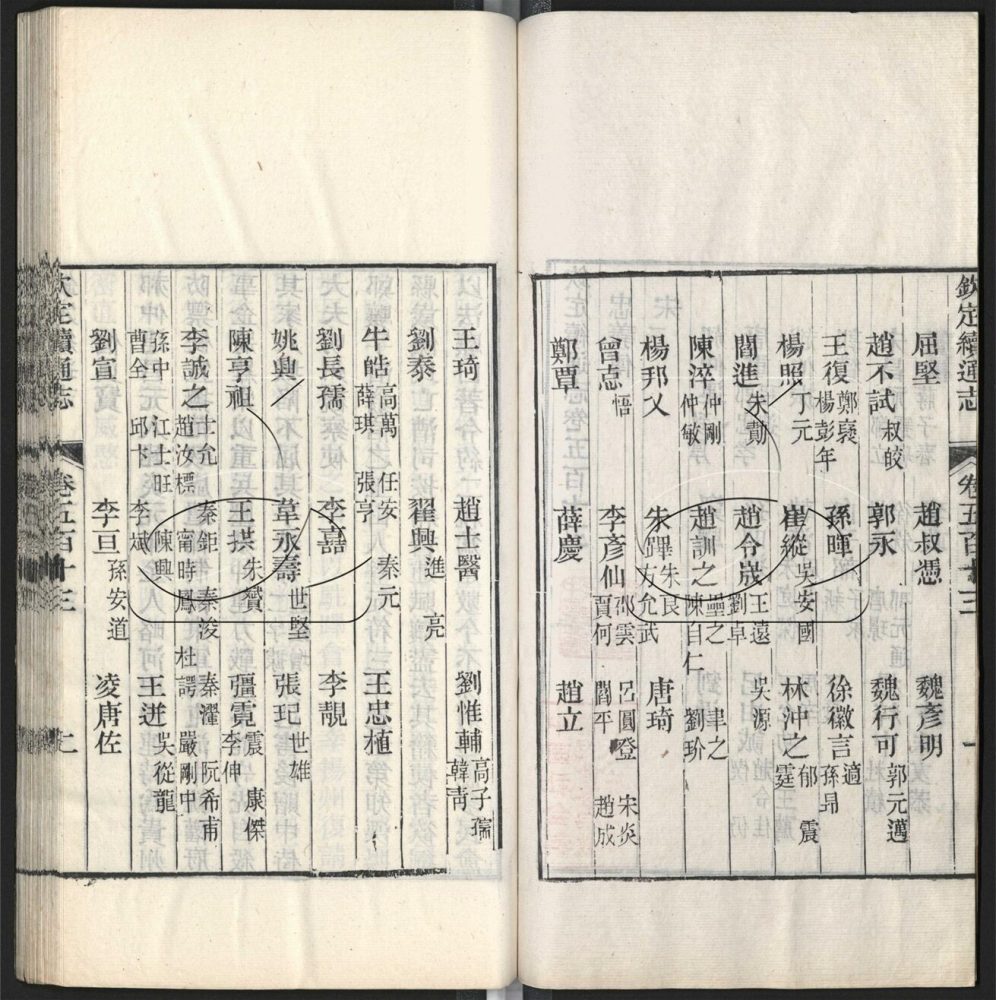 欽定續通志 卷五百十三 一
屈堅 趙叔憑 魏彥明
趙不試 叔皎 郭永 魏行可 郭元邁
王復 鄭裒 楊彭年 孫暉 徐徽言 适 孫昂
楊照 丁元 崔縱 吳安國 林沖之 郁 霆 震
閻進 朱勣 趙令峸 王遠 劉卓 吳源
陳淬 仲剛 仲敏 趙訓之 壘之 陳自仁 聿之 劉玠
楊邦乂 朱蹕 朱良 方允武 唐琦
曾怘 悟 李彥仙 邵雲 賈何 呂圓登 閻平 宋炎 趙成
鄭覃 薛慶 趙立
王琦 趙士醫 劉惟輔 高子孺 韓青
劉泰 翟興 進 亮
牛皓 高萬 薛琪 任安 張亨 秦元 王忠植
劉長孺 李嘉 李靚
姚興 韋永壽 世堅 張玘 世雄
陳亨祖 王拱 朱贇 彊霓 震 李伸 康傑
李誠之 士允 趙汝標 秦鉅 甯時鳳 秦浚 杜諤 秦濯 嚴剛中 阮希甫
孫中 曹全 江士旺 邱卞 陳興 李斌 王迸 吳從龍
劉宣 李亘 孫安道 凌唐佐
欽定續通志 卷五百十三